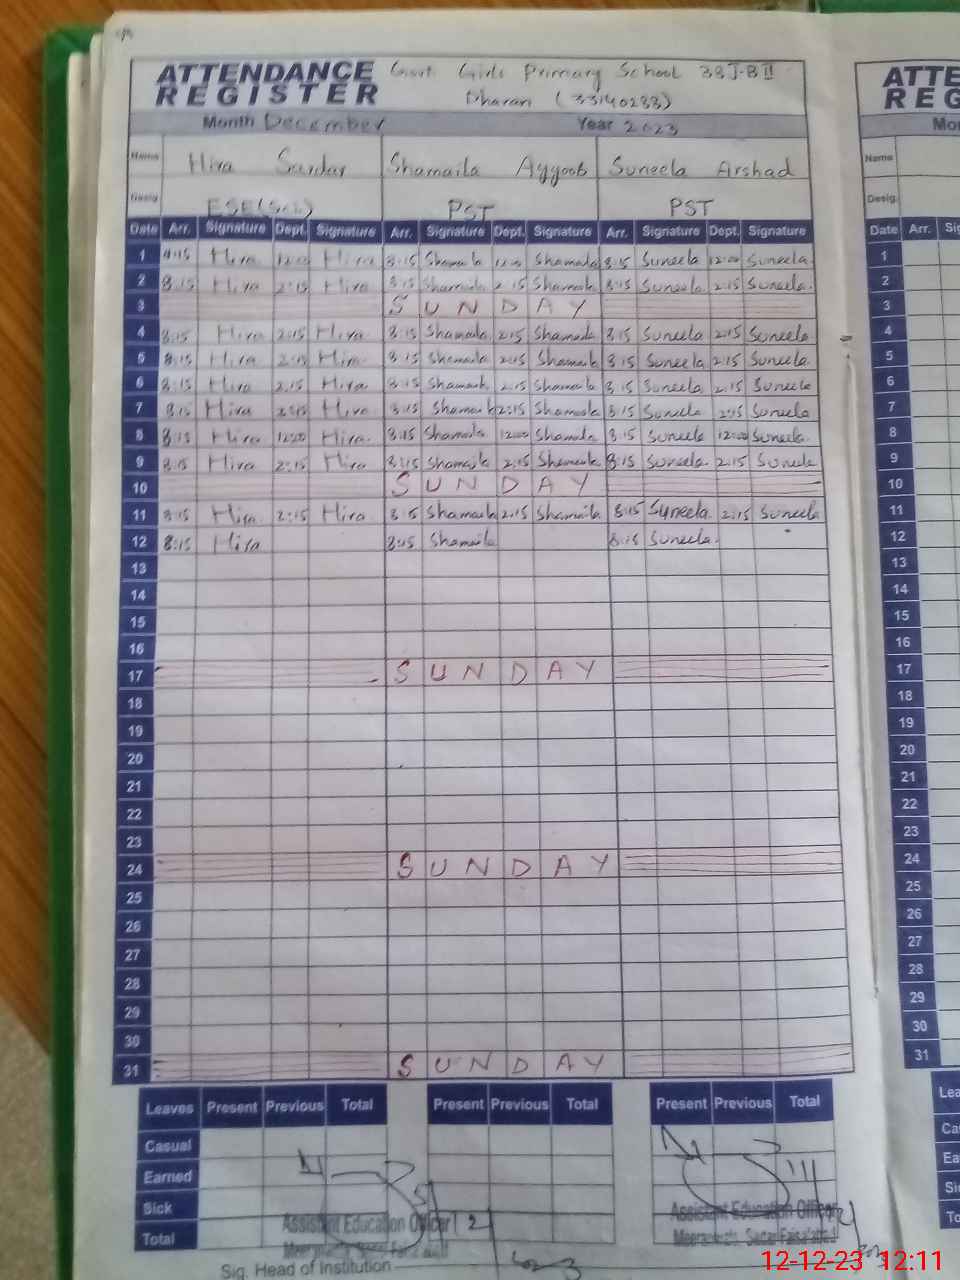 ATTENDANCE REGISTER
Govt. Girls Primary School 38 J-B II
Dharan (33140283)
Month December Year 2023
Name Hira Sardar Shamaila Ayyoob Suneela Arshad
Desig. PST PST
Date Arr. Signature Dept. Signature Arr. Signature Dept. Signature Arr. Signature Dept. Signature
1 8:15 Hira 12:00 Hira 8:15 Shamaila 12:00 Shamaila 8:15 Suneela 12:00 Suneela
2 8:15 Hira 2:15 Hira 8:15 Shamaila 2:15 Shamaila 8:15 Suneela 2:15 Suneela
3 SUNDAY
4 8:15 Hira 2:15 Hira 8:15 Shamaila 2:15 Shamaila 8:15 Suneela 2:15 Suneela
5 8:15 Hira 2:15 Hira 8:15 Shamaila 2:15 Shamaila 8:15 Suneela 2:15 Suneela
6 8:15 Hira 2:15 Hira 8:15 Shamaila 2:15 Shamaila 8:15 Suneela 2:15 Suneela
7 8:15 Hira 2:15 Hira 8:15 Shamaila 2:15 Shamaila 8:15 Suneela 2:15 Suneela
8 8:15 Hira 12:00 Hira 8:15 Shamaila 12:00 Shamaila 8:15 Suneela 12:00 Suneela
9 8:15 Hira 2:15 Hira 8:15 Shamaila 2:15 Shamaila 8:15 Suneela 2:15 Suneela
10 SUNDAY
11 8:15 Hira 2:15 Hira 8:15 Shamaila 2:15 Shamaila 8:15 Suneela 2:15 Suneela
12 8:15 Hira 8:15 Shamaila 8:15 Suneela
13
14
15
16
17 SUNDAY
18
19
20
21
22
23
24 SUNDAY
25
26
27
28
29
30
31 SUNDAY
Leaves Present Previous Total Present Previous Total Present Previous Total
Casual
Earned
Sick
Total
Assistant Education Officer Assistant Education Officer
Sig. Head of Institution
ATTE
REG
Mon
Name
Desig.
Date Arr. Sig
1
2
3
4
5
6
7
8
9
10
11
12
13
14
15
16
17
18
19
20
21
22
23
24
25
26
27
28
29
30
31
Lea
Ca
Ea
Si
To
12-12-23 12:11